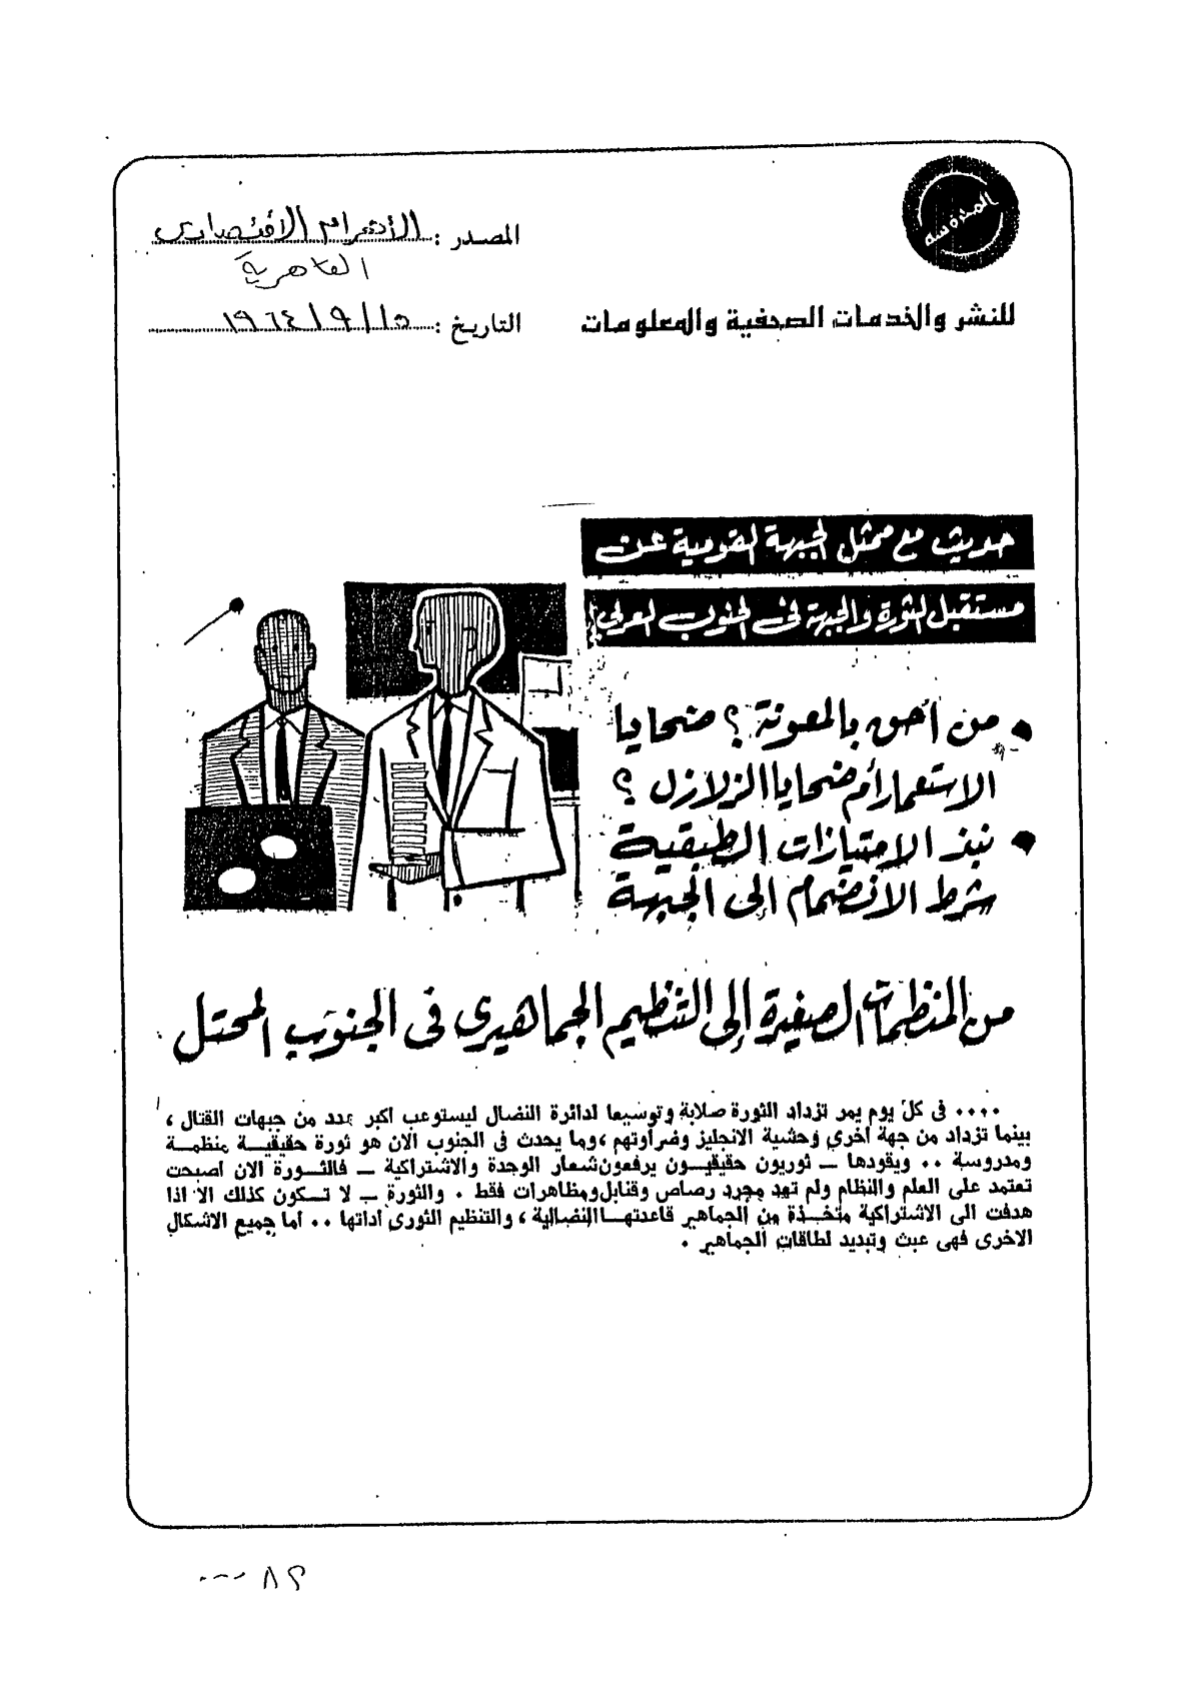 المحروسة
المصدر : الأهرام الاقتصادى
القاهرية
للنشر والخدمات الصحفية والمعلومات
التاريخ : ١٥ / ٩ / ١٩٦٤
حديث مع ممثل الجبهة القومية عن
مستقبل الثورة والجبهة فى الجنوب العربى
● من أحق بالمعونة ؟ ضحايا
الاستعمار أم ضحايا الزلازل ؟
● نبذ الامتيازات الطبقية
شرط الانضمام إلى الجبهة
من المنظمات الصغيرة إلى التنظيم الجماهيرى فى الجنوب المحتل
٠٠٠٠ فى كل يوم يمر تزداد الثورة صلابة وتوسيعا لدائرة النضال ليستوعب اكبر عدد من جبهات القتال ،
بينما تزداد من جهة اخرى وحشية الانجليز وضراوتهم ، وما يحدث فى الجنوب الان هو ثورة حقيقيـة منظمـة
ومدروسة ٠٠ ويقودها ــ ثوريون حقيقيـون يرفعون شعار الوحدة والاشتراكية ــ فالثـورة الان اصبحت
تعتمد على العلم والنظام ولم تعد مجرد رصاص وقنابل ومظاهرات فقط ٠ والثورة ــ لا تـكون كذلك الا اذا
هدفت الى الاشتراكية متخـذة من الجماهير قاعدتهـا النضالية ، والتنظيم الثورى اداتها ٠٠ اما جميع الاشكال
الاخرى فهى عبث وتبديد لطاقات الجماهير ٠